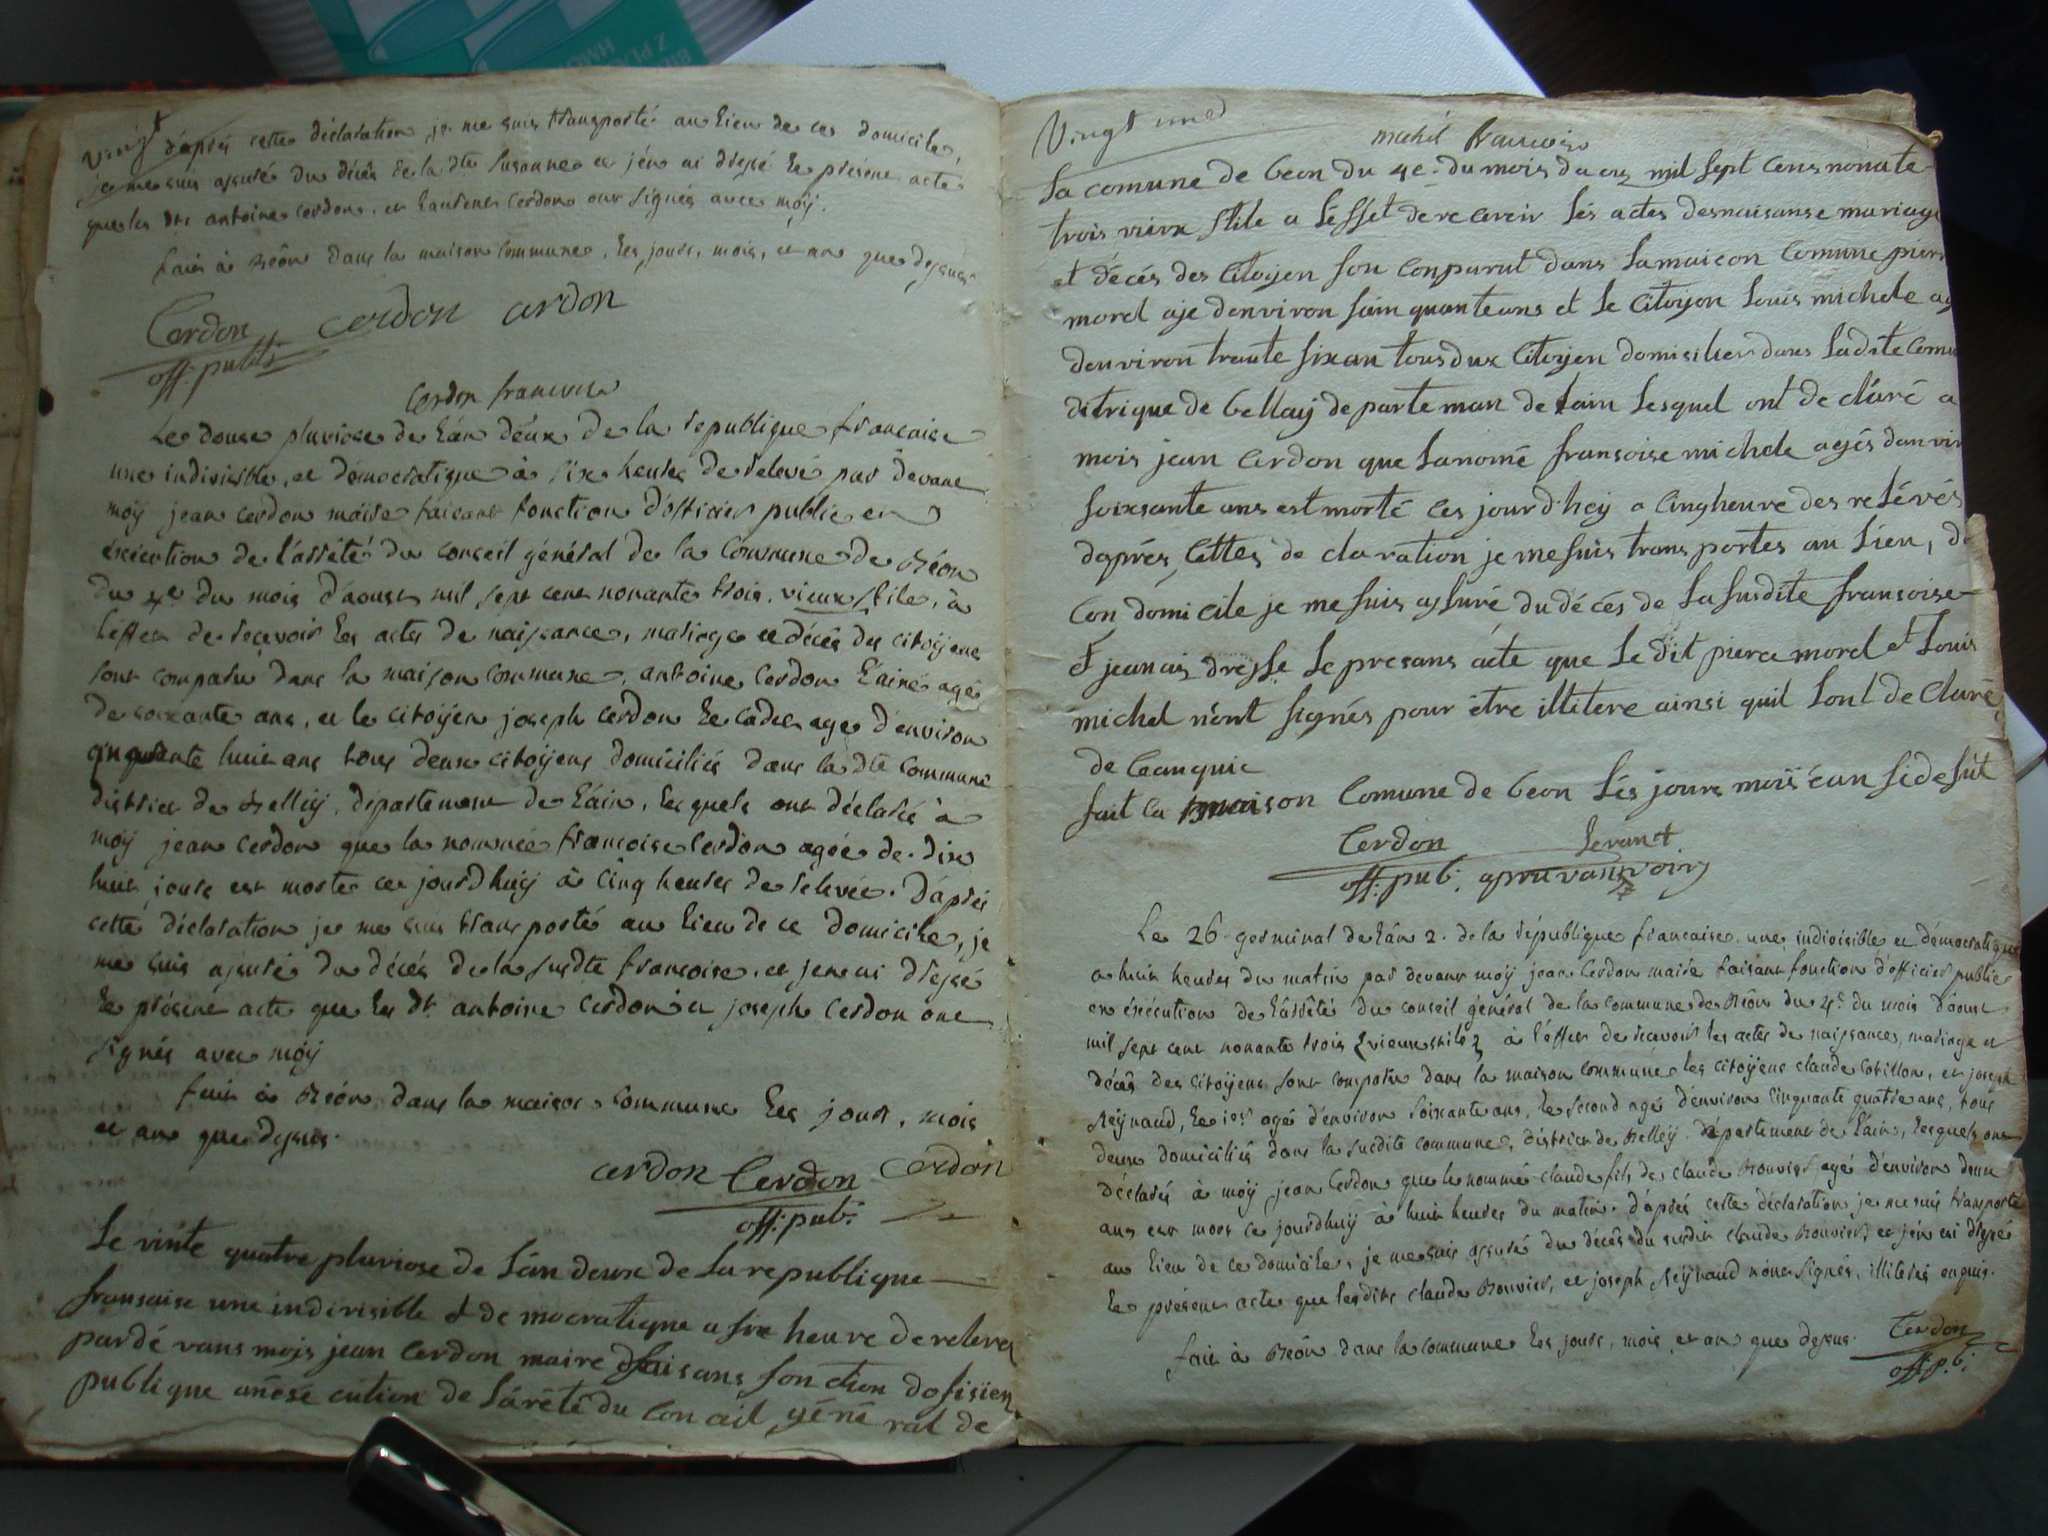 Vingt
d'aprés cette déclaration, je me suis transporté au lieu de ce domicile,
je me suis assuré du décés de la dte Susanne et j'en ai dressé le présent acte
que les dts antoine cerdon, et Laurent cerdon ont signés avec möÿ.
fait à Béon dans la maison commune, les jours, mois, et an que dessus
Cerdon cerdon cerdon
off. public
Cerdon francoise
Le douse pluviose de l'an déux de la republique francaise
une indivisible, et démocratique à six heures de relevé par devant
möÿ jean cerdon maire faisant fonction d'officier public en
éxécution de l'arrêté du conseil général de la commune de Béon
du 4e du mois d'aoust mil sept cent nonante trois, vieux stile, à
l'éffet de recevoir les actes de naissance, mariage et décés des citoÿens
sont comparu dans la maison commune, antoine Cerdon l'ainé agé
de soixante ans, et le citoÿen joseph cerdon le cadet age d'environ
cinquante huit ans tous deux citoÿens domiciliés dans la dte commune
district de Belleÿ, département de l'ain, les quels ont déclaré à
möÿ jean cerdon que la nommée francoise Cerdon agée de dix
huit jours est morte ce jourdhuÿ à cinq heures de relevée. D'aprés
cette déclaration je me suis transporté au lieu de ce domicile, je
me suis assuré du décés de la susdte francoise, et jen ai dressé
le présent acte que les dt. antoine cerdon et joseph cerdon ont
signés avec möÿ
fait à Béon dans la maison commune les jours, mois
et an que dessus.
cerdon Cerdon cerdon
off: pub:
Le vinte quatre pluviose de L'an deux de La republique
fransaise une indivisible & de mocratique a six heure de releves
pardé vans mojs jean Cerdon maire faisans fonction dofisien
publique an éxé cution de L'arêté du Con ail géné ral de
Vingt une
michel francoise
La comune de beon du 4e. du mois daous mil sept Cens nonate
trois vieux stile a L'effet de re cevoir Lés actes desnaisanse mariage
et décés des Citoyen son Conparut dans Lamaison Comune piere
morel aje denviron sainquanteans et Le Citoyen Louis michele ag
denviron trante sixan tousdux Citoyen domisilies dans Ladite Comu
ditrique de bellaÿ departeman de Lain Lesquel ont de cláré a
mois jean Cerdon que Lanomé fransoise michele agés danvir
soixsante ans est morté ces jourd'hey a Cinqheure des relévés
daprés, Cettes de claration je mesuis trans portes au Lieu, de
Con domicile je me suis assuré du décés de La susdite fransoise
Et jeanais dresse Le presans acte que Le dit piere morel et Louis
michel n'ont signés pour étre illitere ainsi quil Lont de Claré
de Ceanquis
fait la maison Comune de beon Lés jours mois éan si desut
Cerdon
off: pub: apruvans
Le 26 germinal de l'ân 2. de la république francaise, une indivisible et démocratique
a huit heures du matin par devant möÿ jean Cerdon maire faisant fonction d'officier public
en éxécution de l'arrêté du conseil général de la commune de Béon du 4e. du mois d'aoust
mil sept cent nonante trois vieux stile à l'éffet de recevoir les actes de naissances, mariage et
décés des citoÿens sont comparu dans la maison commune les citoÿens claude cotillon, et joseph
Reÿnaud, le 1er agé d'environ soixante ans, le second agé d'environ cinquante quatre ans, tous
deux domiciliés dans la susdite commune, district de Belleÿ département de l'ain, lesquels ont
déclarés à möÿ jean Cerdon que le nommé claude fils de claude Bouvier agé d'environ deux
ans est mort ce jourdhuÿ à huit heures du matin. D'aprés cette déclaration je me suis transporté
au lieu de ce domicile, je me suis assuré du décés du susdit claude Bouvier et j'en ai dressé
le présent acte que lesdits claude Bouvier, et joseph Reÿnaud n'ont signés, illiterés enquis.
fait à Béon dans la commune les jours, mois et an que dessus.
Cerdon
off. p.b: